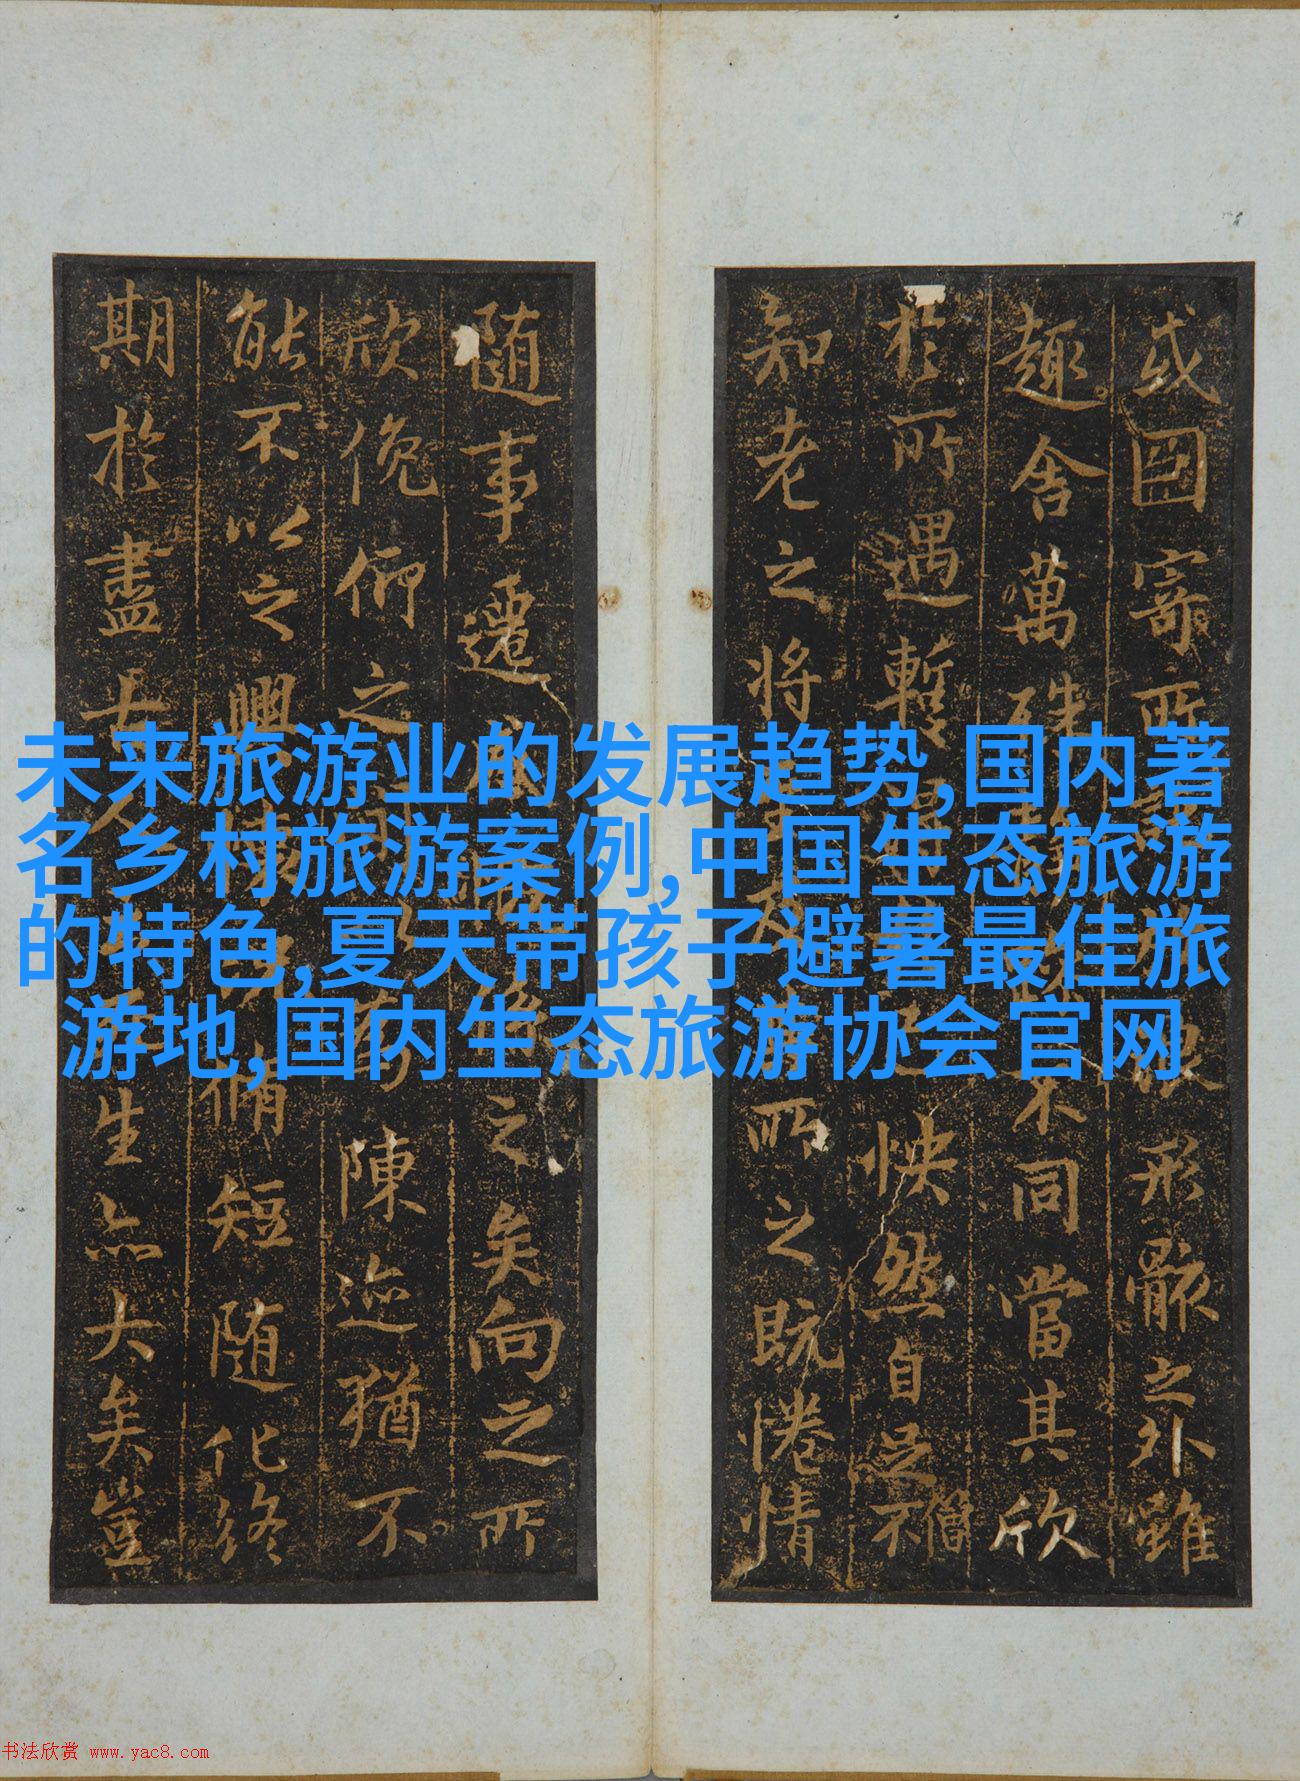 未来旅游业的发展趋势,国内著
名乡村旅游案例,中国生态旅游
的特色,夏天带孩子避暑最佳旅
游地,国内生态旅游协会官网
或因寄所形骸之外雖
趣舍萬殊不同當其欣
於所遇暫怏然自足不
僧
知老之将所之既惓情
随事遷之矣向之所
欣俛仰之陳迹猶不
能不以之興脩短随化終
期於盡古生亦大矣豈
书法欣赏 www.yac8.com